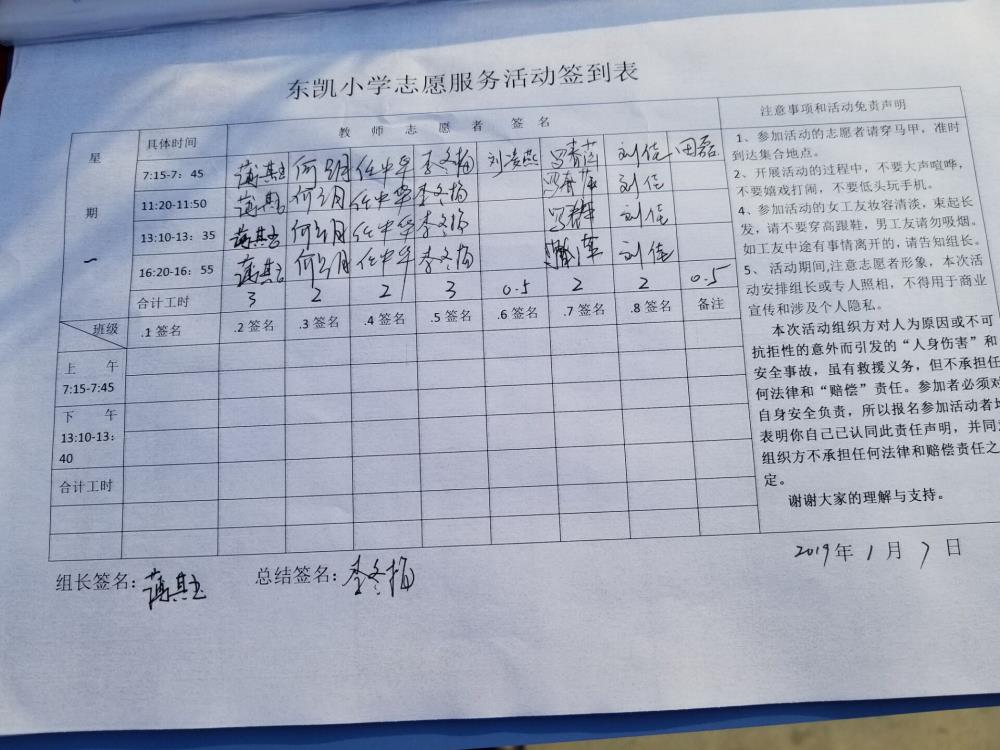 东凯小学志愿服务活动签到表
星期一
具体时间 教师志愿者签名
7:15-7：45 何明 任中华 李冬梅 刘凌燕 刘佳 田磊
11:20-11:50 任中华 李冬梅 刘佳
13:10-13：35 任中华 李冬梅 刘佳
16:20-16：55 任中华 李冬梅 刘佳
合计工时 3 2 2 3 0.5 2 2 0.5
班级 .1 签名 .2 签名 .3 签名 .4 签名 .5 签名 .6 签名 .7 签名 .8 签名 备注
上 午
7:15-7:45
下 午
13:10-13:
40
合计工时
注意事项和活动免责声明
1、参加活动的志愿者请穿马甲，准时
到达集合地点。
2、开展活动的过程中，不要大声喧哗，
不要嬉戏打闹，不要低头玩手机。
4、参加活动的女工友妆容清淡，束起长
发，请不要穿高跟鞋，男工友请勿吸烟。
如工友中途有事情离开的，请告知组长。
5、活动期间,注意志愿者形象，本次活
动安排组长或专人照相，不得用于商业
宣传和涉及个人隐私。
本次活动组织方对人为原因或不可
抗拒性的意外而引发的“人身伤害”和
安全事故，虽有救援义务，但不承担任
何法律和“赔偿”责任。参加者必须对
自身安全负责，所以报名参加活动者
表明你自己已认同此责任声明，并同
组织方不承担任何法律和赔偿责任之
定。
谢谢大家的理解与支持。
2019年1月7日
组长签名： 总结签名：李冬梅